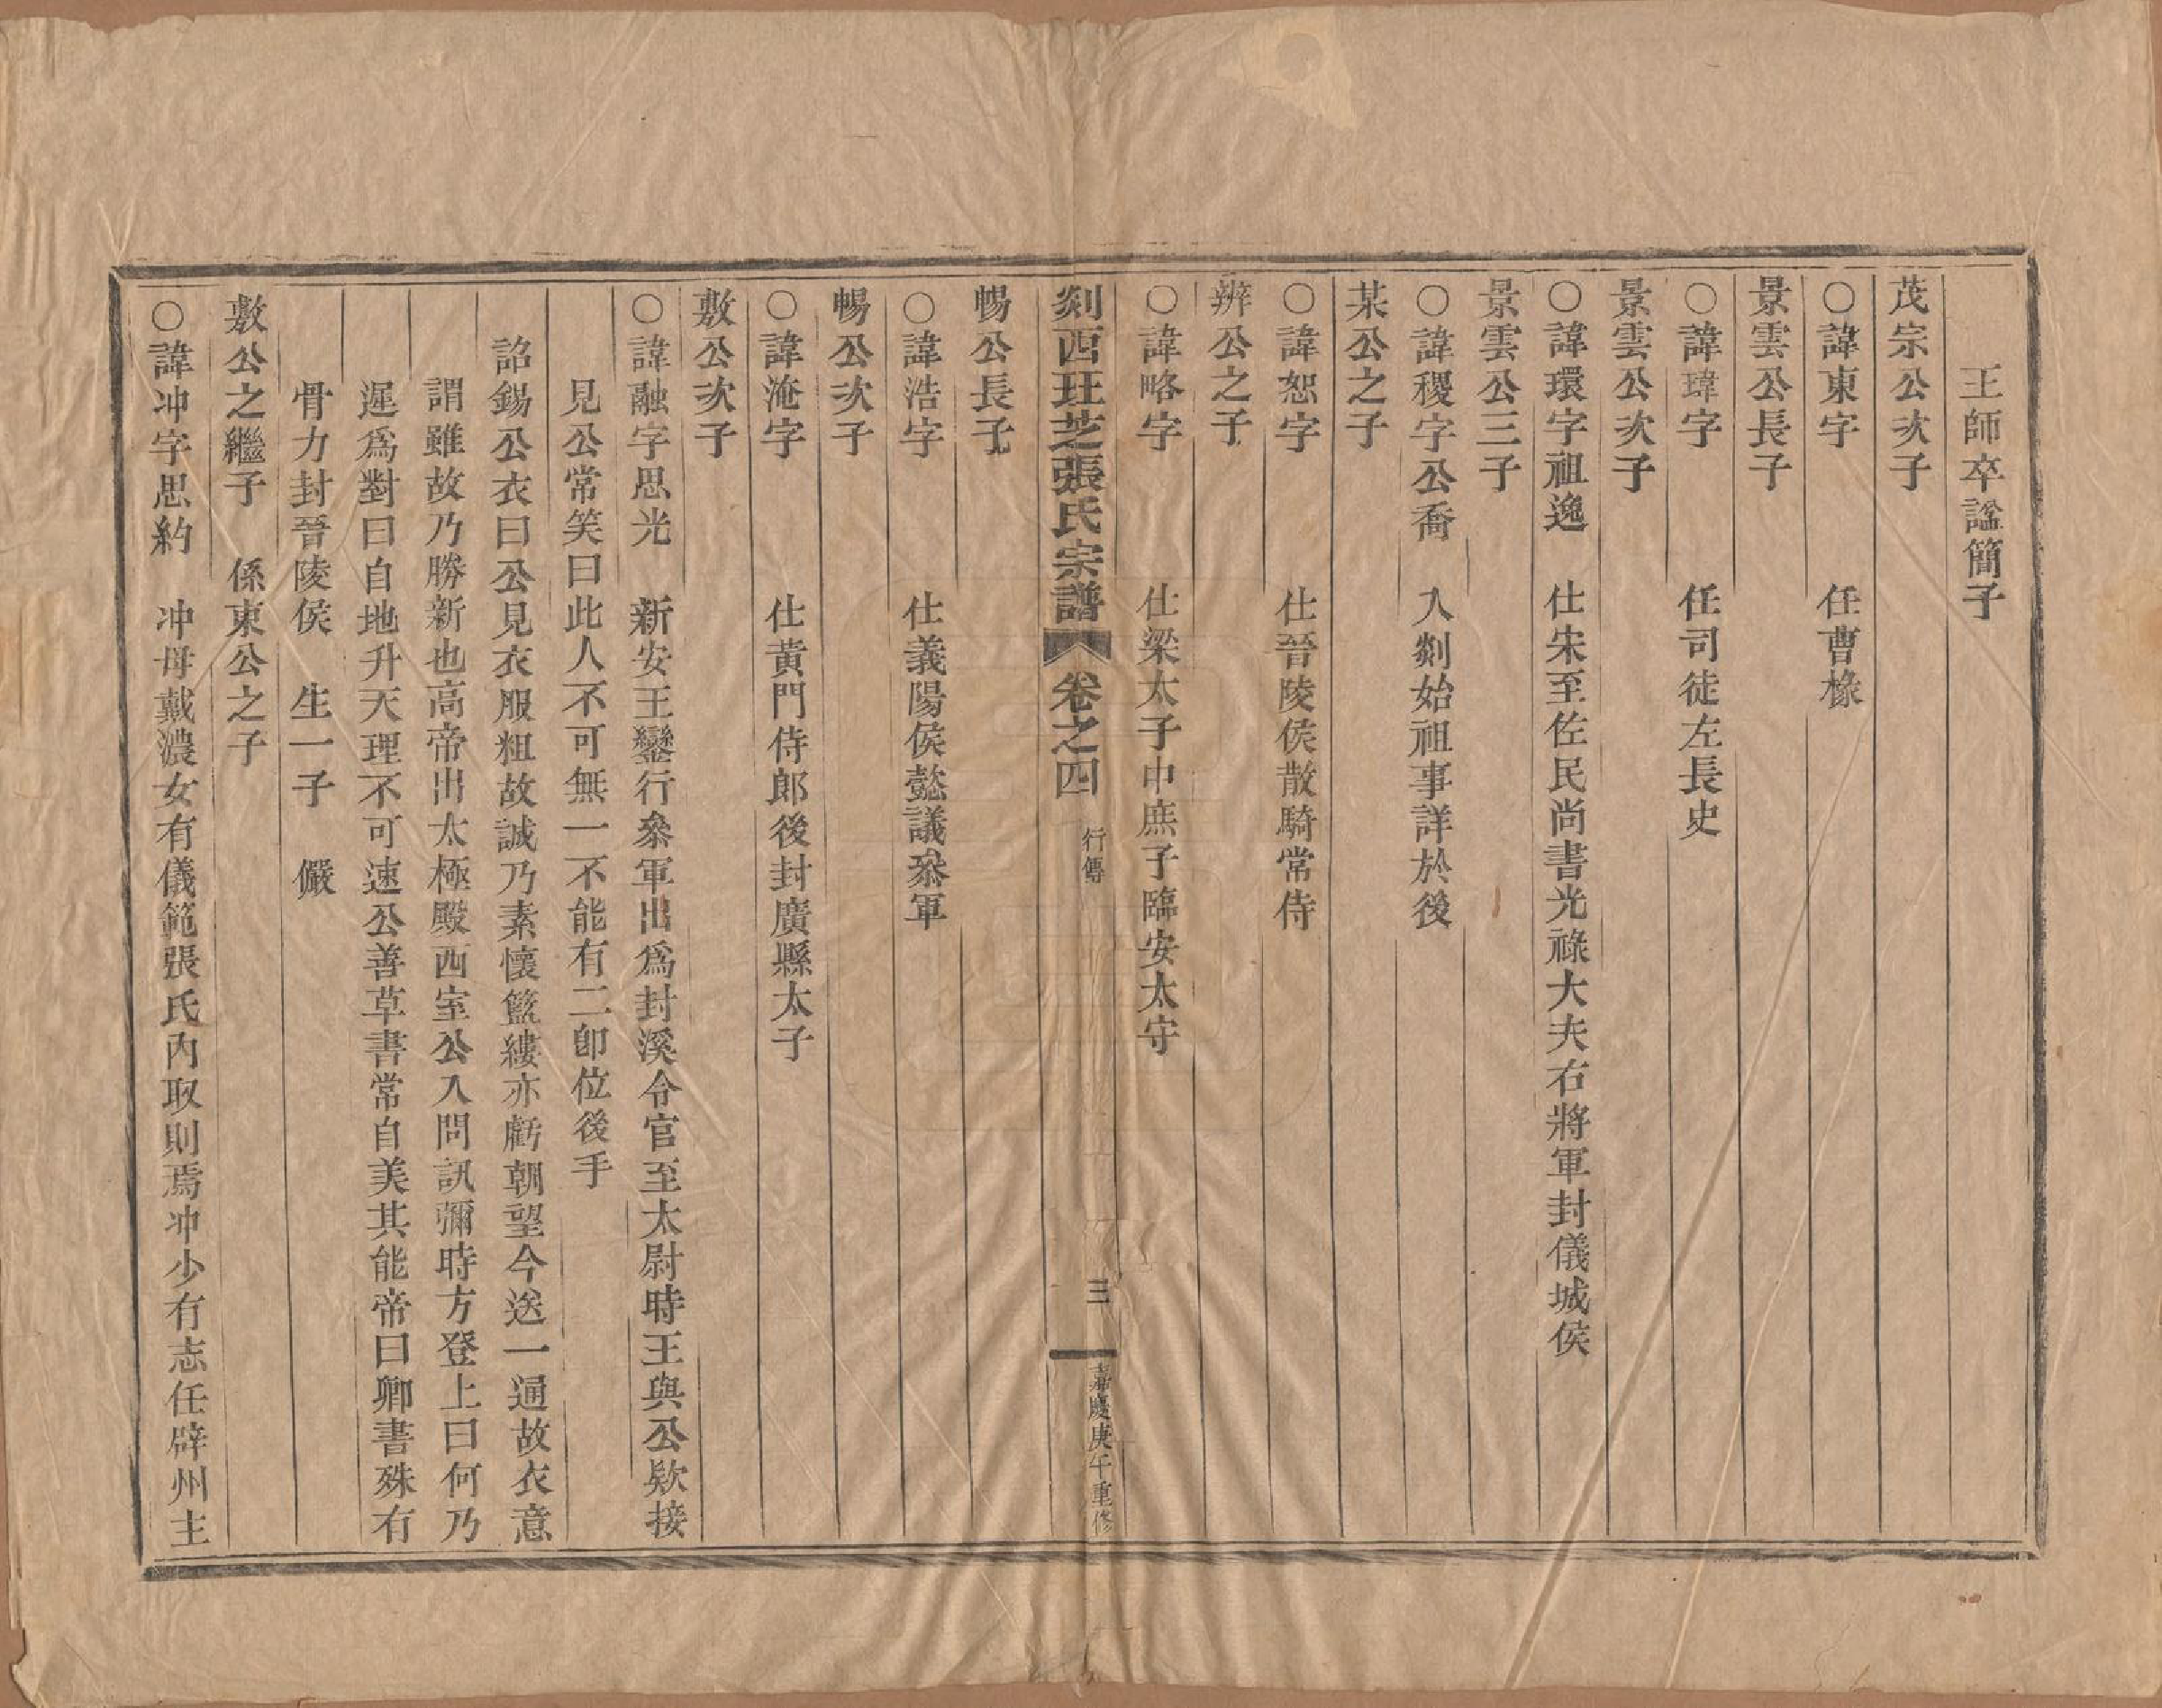 王師卒諡簡子
茂宗公次子
○諱東字　任曹掾
景雲公長子
○諱瑋字　任司徒左長史
景雲公次子
○諱環字祖逸　仕宋至佐民尚書光祿大夫右將軍封儀城侯
景雲公三子
○諱稷字公喬　入剡始祖事詳於後
某公之子
○諱恕字　仕晉陵侯散騎常侍
辨公之子
○諱略字　仕梁太子中庶子臨安太守
剡西玨芝張氏宗譜　卷之四　行傳　三　嘉慶庚午重修
暢公長子
○諱浩字　仕義陽侯懿議叅軍
暢公次子
○諱淹字　仕黄門侍郎後封廣縣太子
敷公次子
○諱融字思光　新安王鑾行叅軍出爲封溪令官至太尉時王與公欵接
見公常笑曰此人不可無一不能有二卽位後手
詔錫公衣曰公見衣服粗故誠乃素懷籃縷亦虧朝望今送一通故衣意
謂雖故乃勝新也高帝出太極殿西室公入問訊彌時方登上曰何乃
遲爲對曰自地升天理不可速公善草書常自美其能帝曰卿書殊有
骨力封晉陵侯　生一子　儼
敷公之繼子　係東公之子
○諱冲字思約　冲母戴濃女有儀範張氏内取則焉冲少有志任辟州主